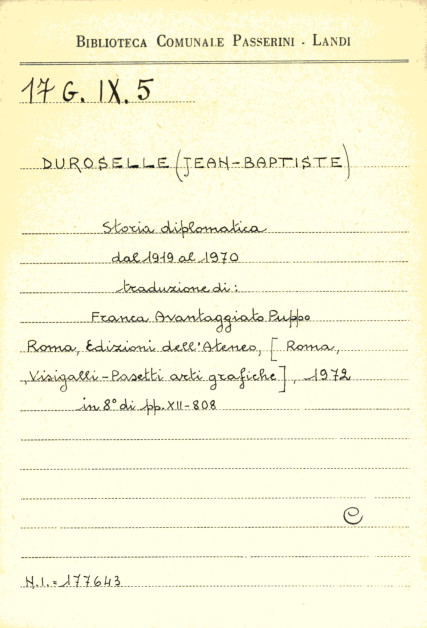 BIBLIOTECA COMUNALE PASSERINI - LANDI
17 G. IX. 5
DUROSELLE (JEAN-BAPTISTE)
Storia diplomatica
dal 1919 al 1970
traduzione di:
Franca Avantaggiato Puppo
Roma, Edizioni dell'Ateneo, [Roma,
Visigalli-Pasetti arti grafiche], 1972
in 8° di pp. XII-808
C
N.I.= 177643